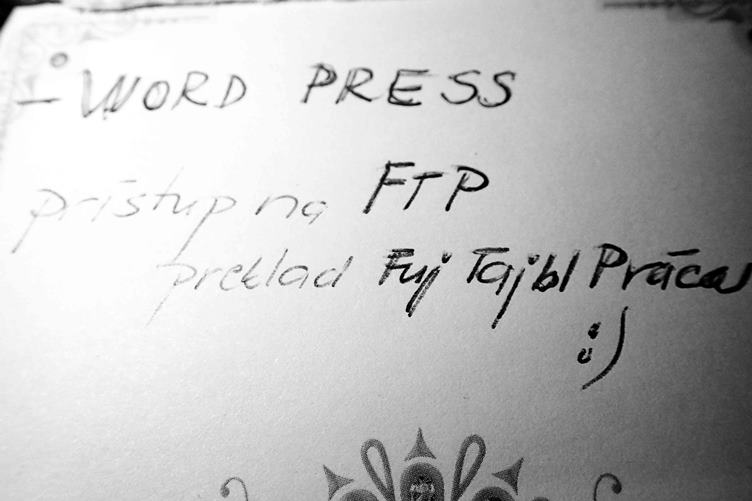 - WORD PRESS
prístup na FTP
preklad Fuj Tajbl Práca
:)